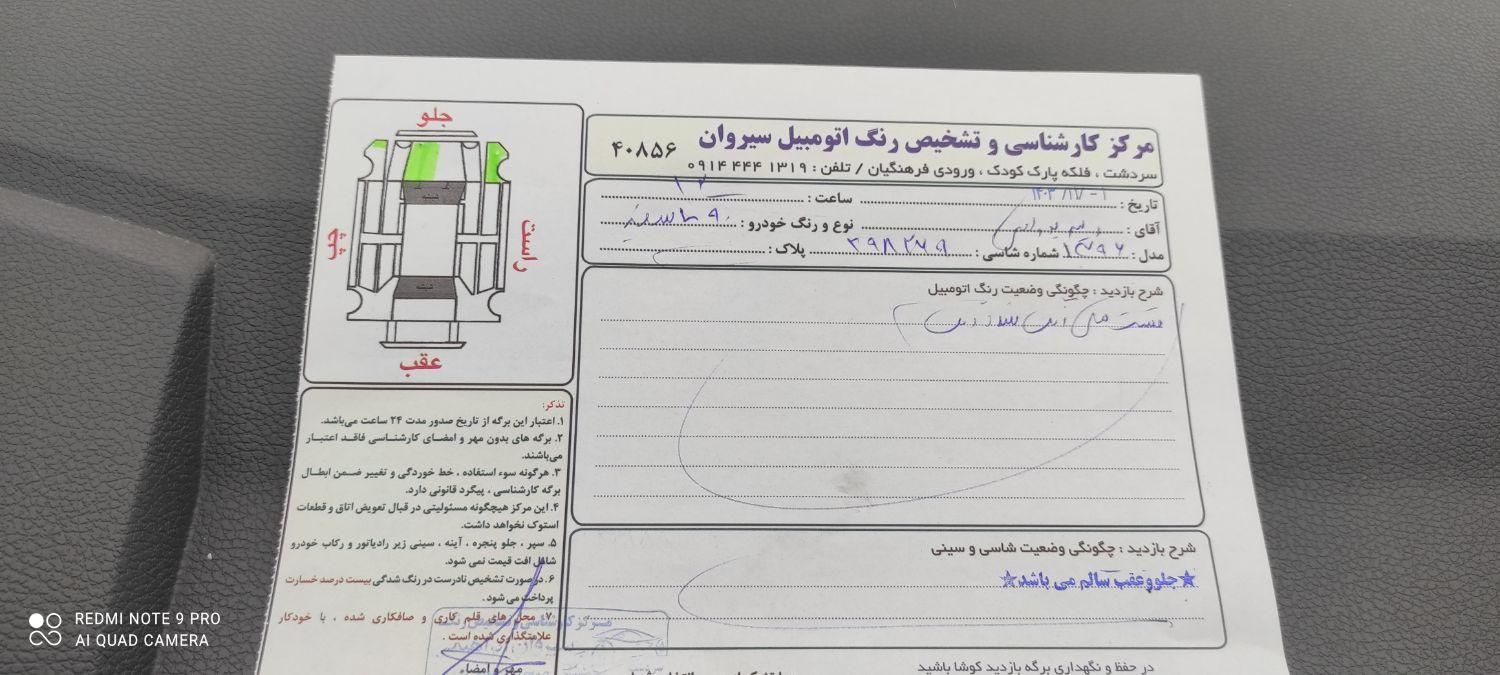 جلو
شیشه
راست
چپ
شیشه
عقب
مرکز کارشناسی و تشخیص رنگ اتومبیل سیروان
۴۰۸۵۶
سردشت ، فلکه پارک کودک ، ورودی فرهنگیان / تلفن : ۱۳۱۹ ۴۴۴ ۰۹۱۴
تاریخ : ساعت :
آقای : نوع و رنگ خودرو :
مدل : ۱۳۹۶ شماره شاسی : ۳۹۸۲۷۹ پلاک :
شرح بازدید : چگونگی وضعیت رنگ اتومبیل
شرح بازدید : چگونگی وضعیت شاسی و سینی
★جلووعقب سالم می باشد★
در حفظ و نگهداری برگه بازدید کوشا باشید
تذکر:
۱. اعتبار این برگه از تاریخ صدور مدت ۲۴ ساعت می‌باشد.
۲. برگه های بدون مهر و امضای کارشناسی فاقد اعتبار
می‌باشند.
۳. هرگونه سوء استفاده ، خط خوردگی و تغییر ضمن ابطال
برگه کارشناسی ، پیگرد قانونی دارد.
۴. این مرکز هیچگونه مسئولیتی در قبال تعویض اتاق و قطعات
استوک نخواهد داشت.
۵. سپر ، جلو پنجره ، آینه ، سینی زیر رادیاتور و رکاب خودرو
شامل افت قیمت نمی شود.
۶. در صورت تشخیص نادرست در رنگ شدگی بیست درصد خسارت
پرداخت می شود .
۷. محل های قلم کاری و صافکاری شده ، با خودکار
علامتگذاری شده است .
مهر و امضاء
REDMI NOTE 9 PRO
AI QUAD CAMERA